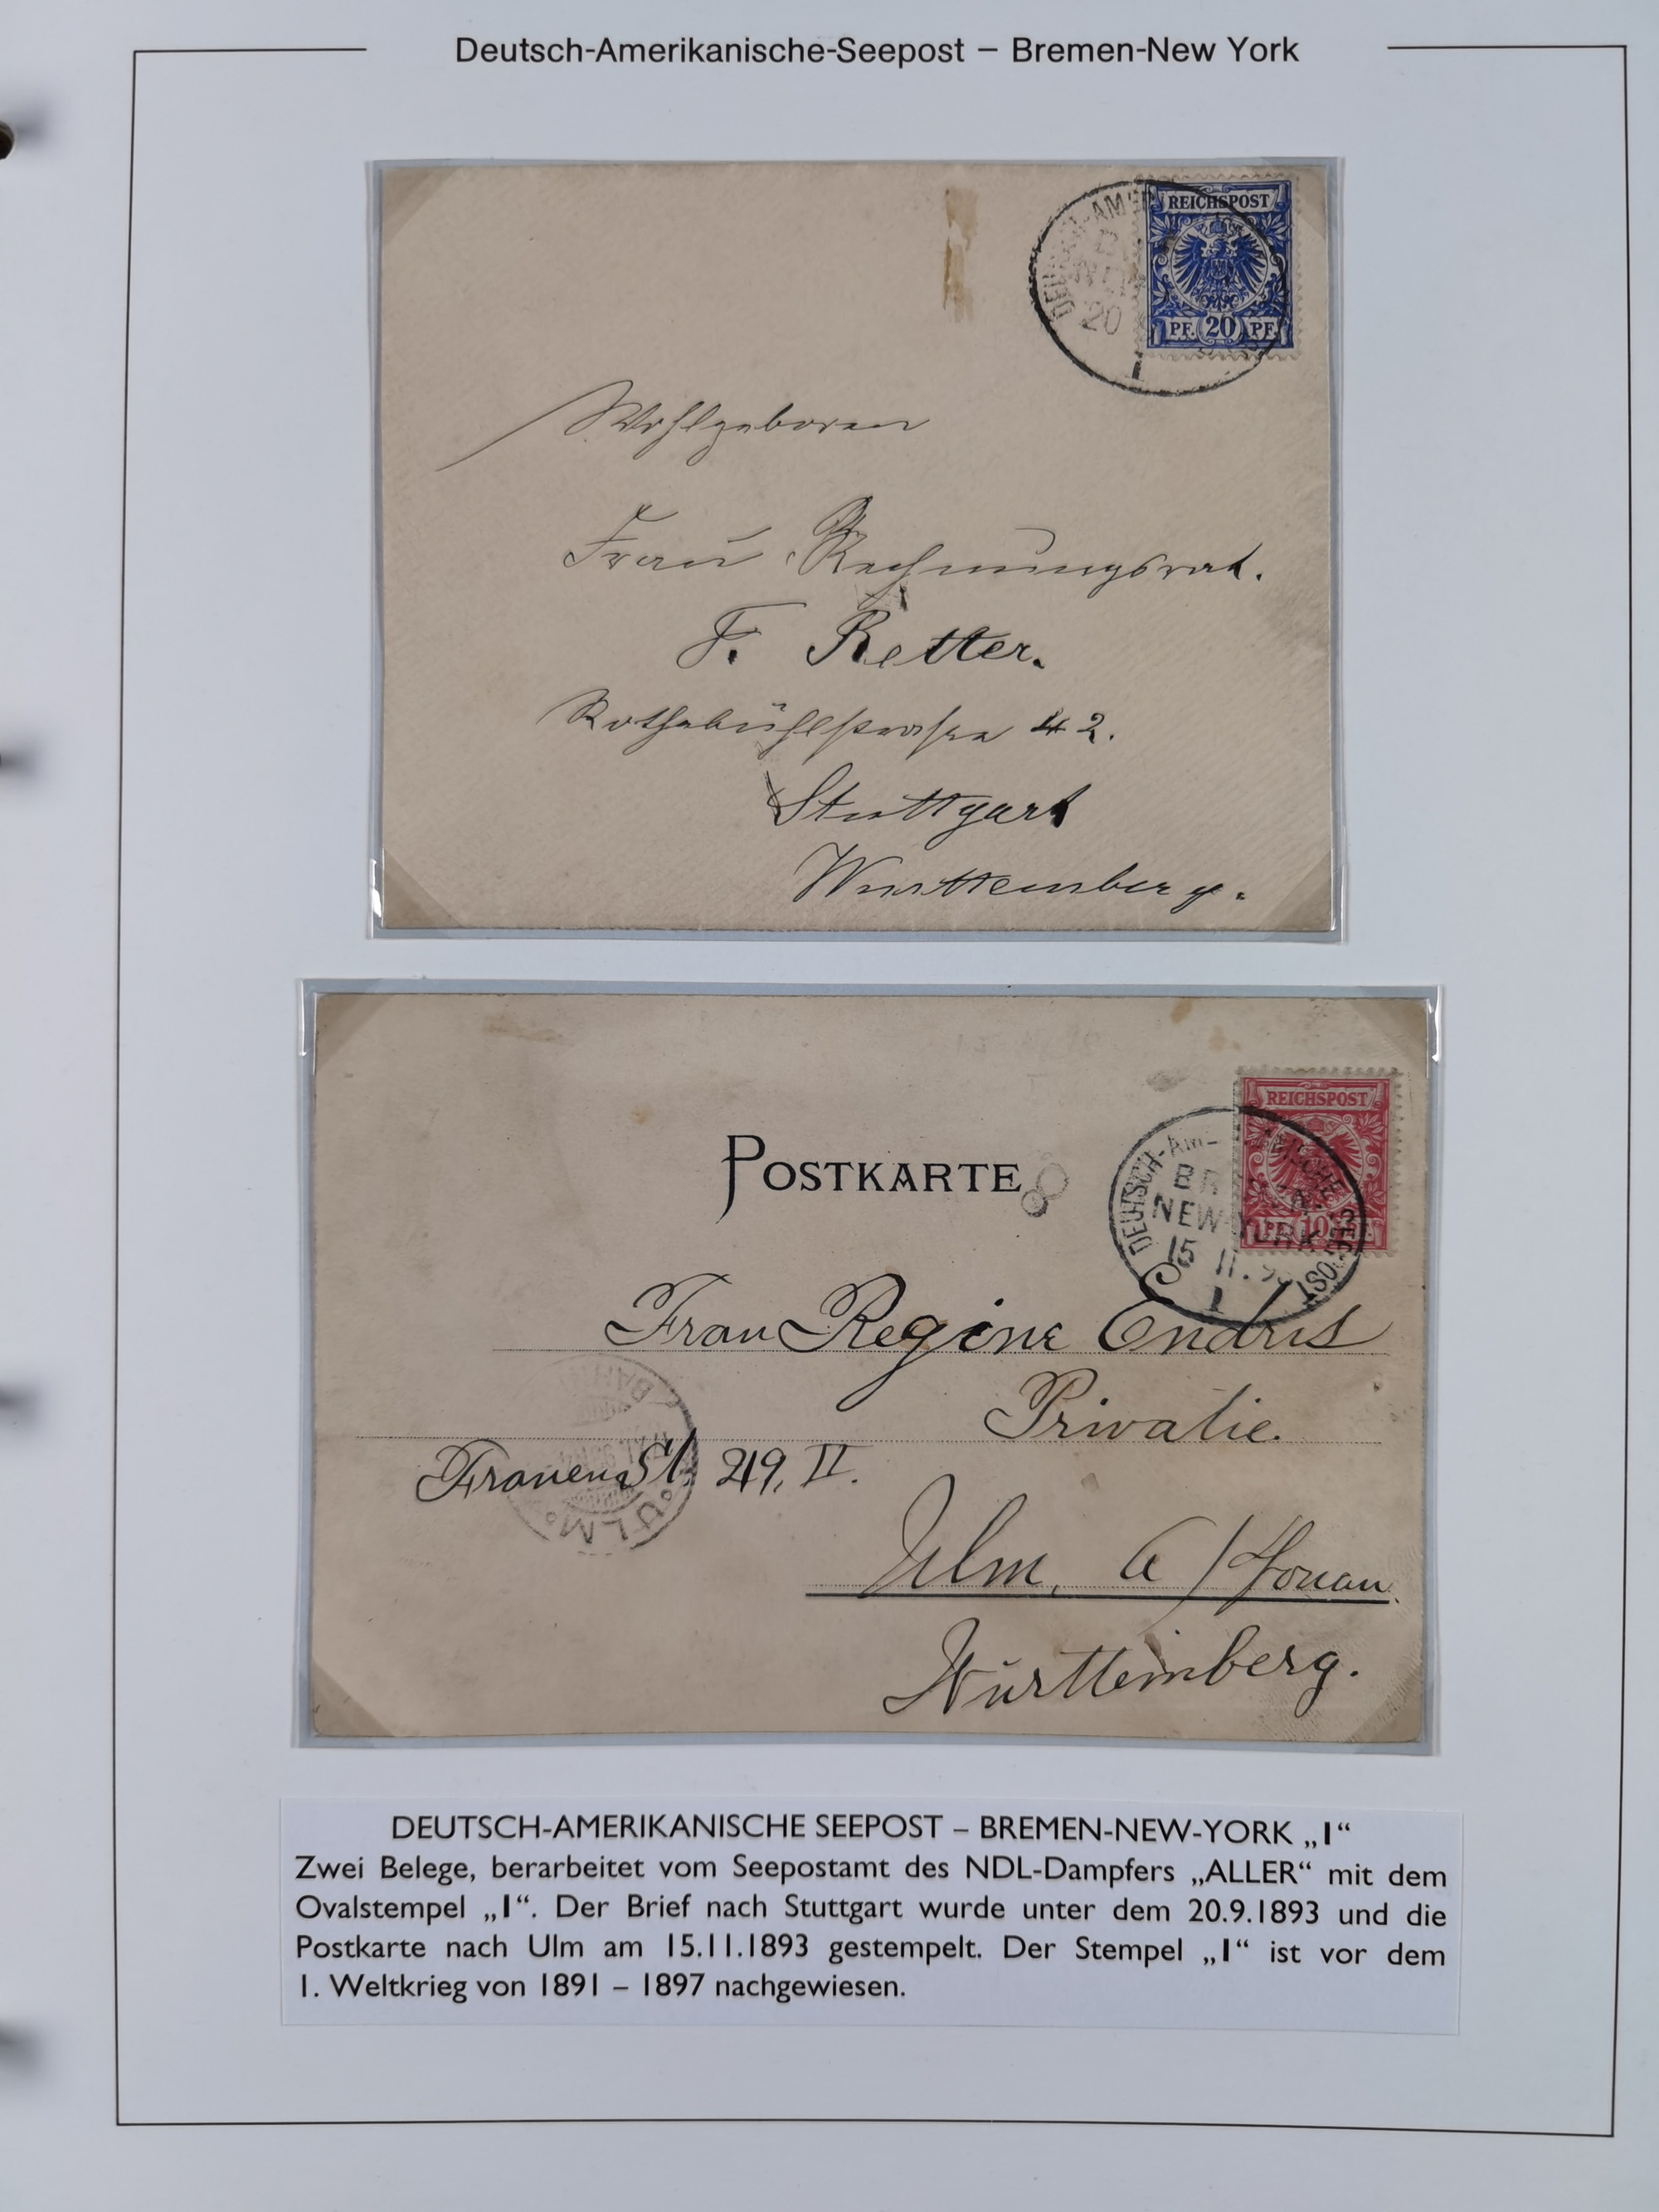 Deutsch-Amerikanische-Seepost – Bremen-New York
DEUTSCH-AMER
REICHSPOST
20
PF. 20 PF.
I
Wohlgeboren
Frau Rechnungsrat.
F. Retter.
Rothebühlstrasse 42.
Stuttgart
Württemberg.
POSTKARTE
REICHSPOST
DEUTSCH-AM
BR
NEW YORK
SEEPOST
PF. 10 PF.
15 11. 93
I
Frau Regine Endris
Privatie.
Frauen St. 219, II.
ULM
BAH
Ulm, a/Donau
Württemberg.
DEUTSCH-AMERIKANISCHE SEEPOST – BREMEN-NEW-YORK „I“
Zwei Belege, berarbeitet vom Seepostamt des NDL-Dampfers „ALLER“ mit dem
Ovalstempel „I“. Der Brief nach Stuttgart wurde unter dem 20.9.1893 und die
Postkarte nach Ulm am 15.11.1893 gestempelt. Der Stempel „I“ ist vor dem
1. Weltkrieg von 1891 – 1897 nachgewiesen.